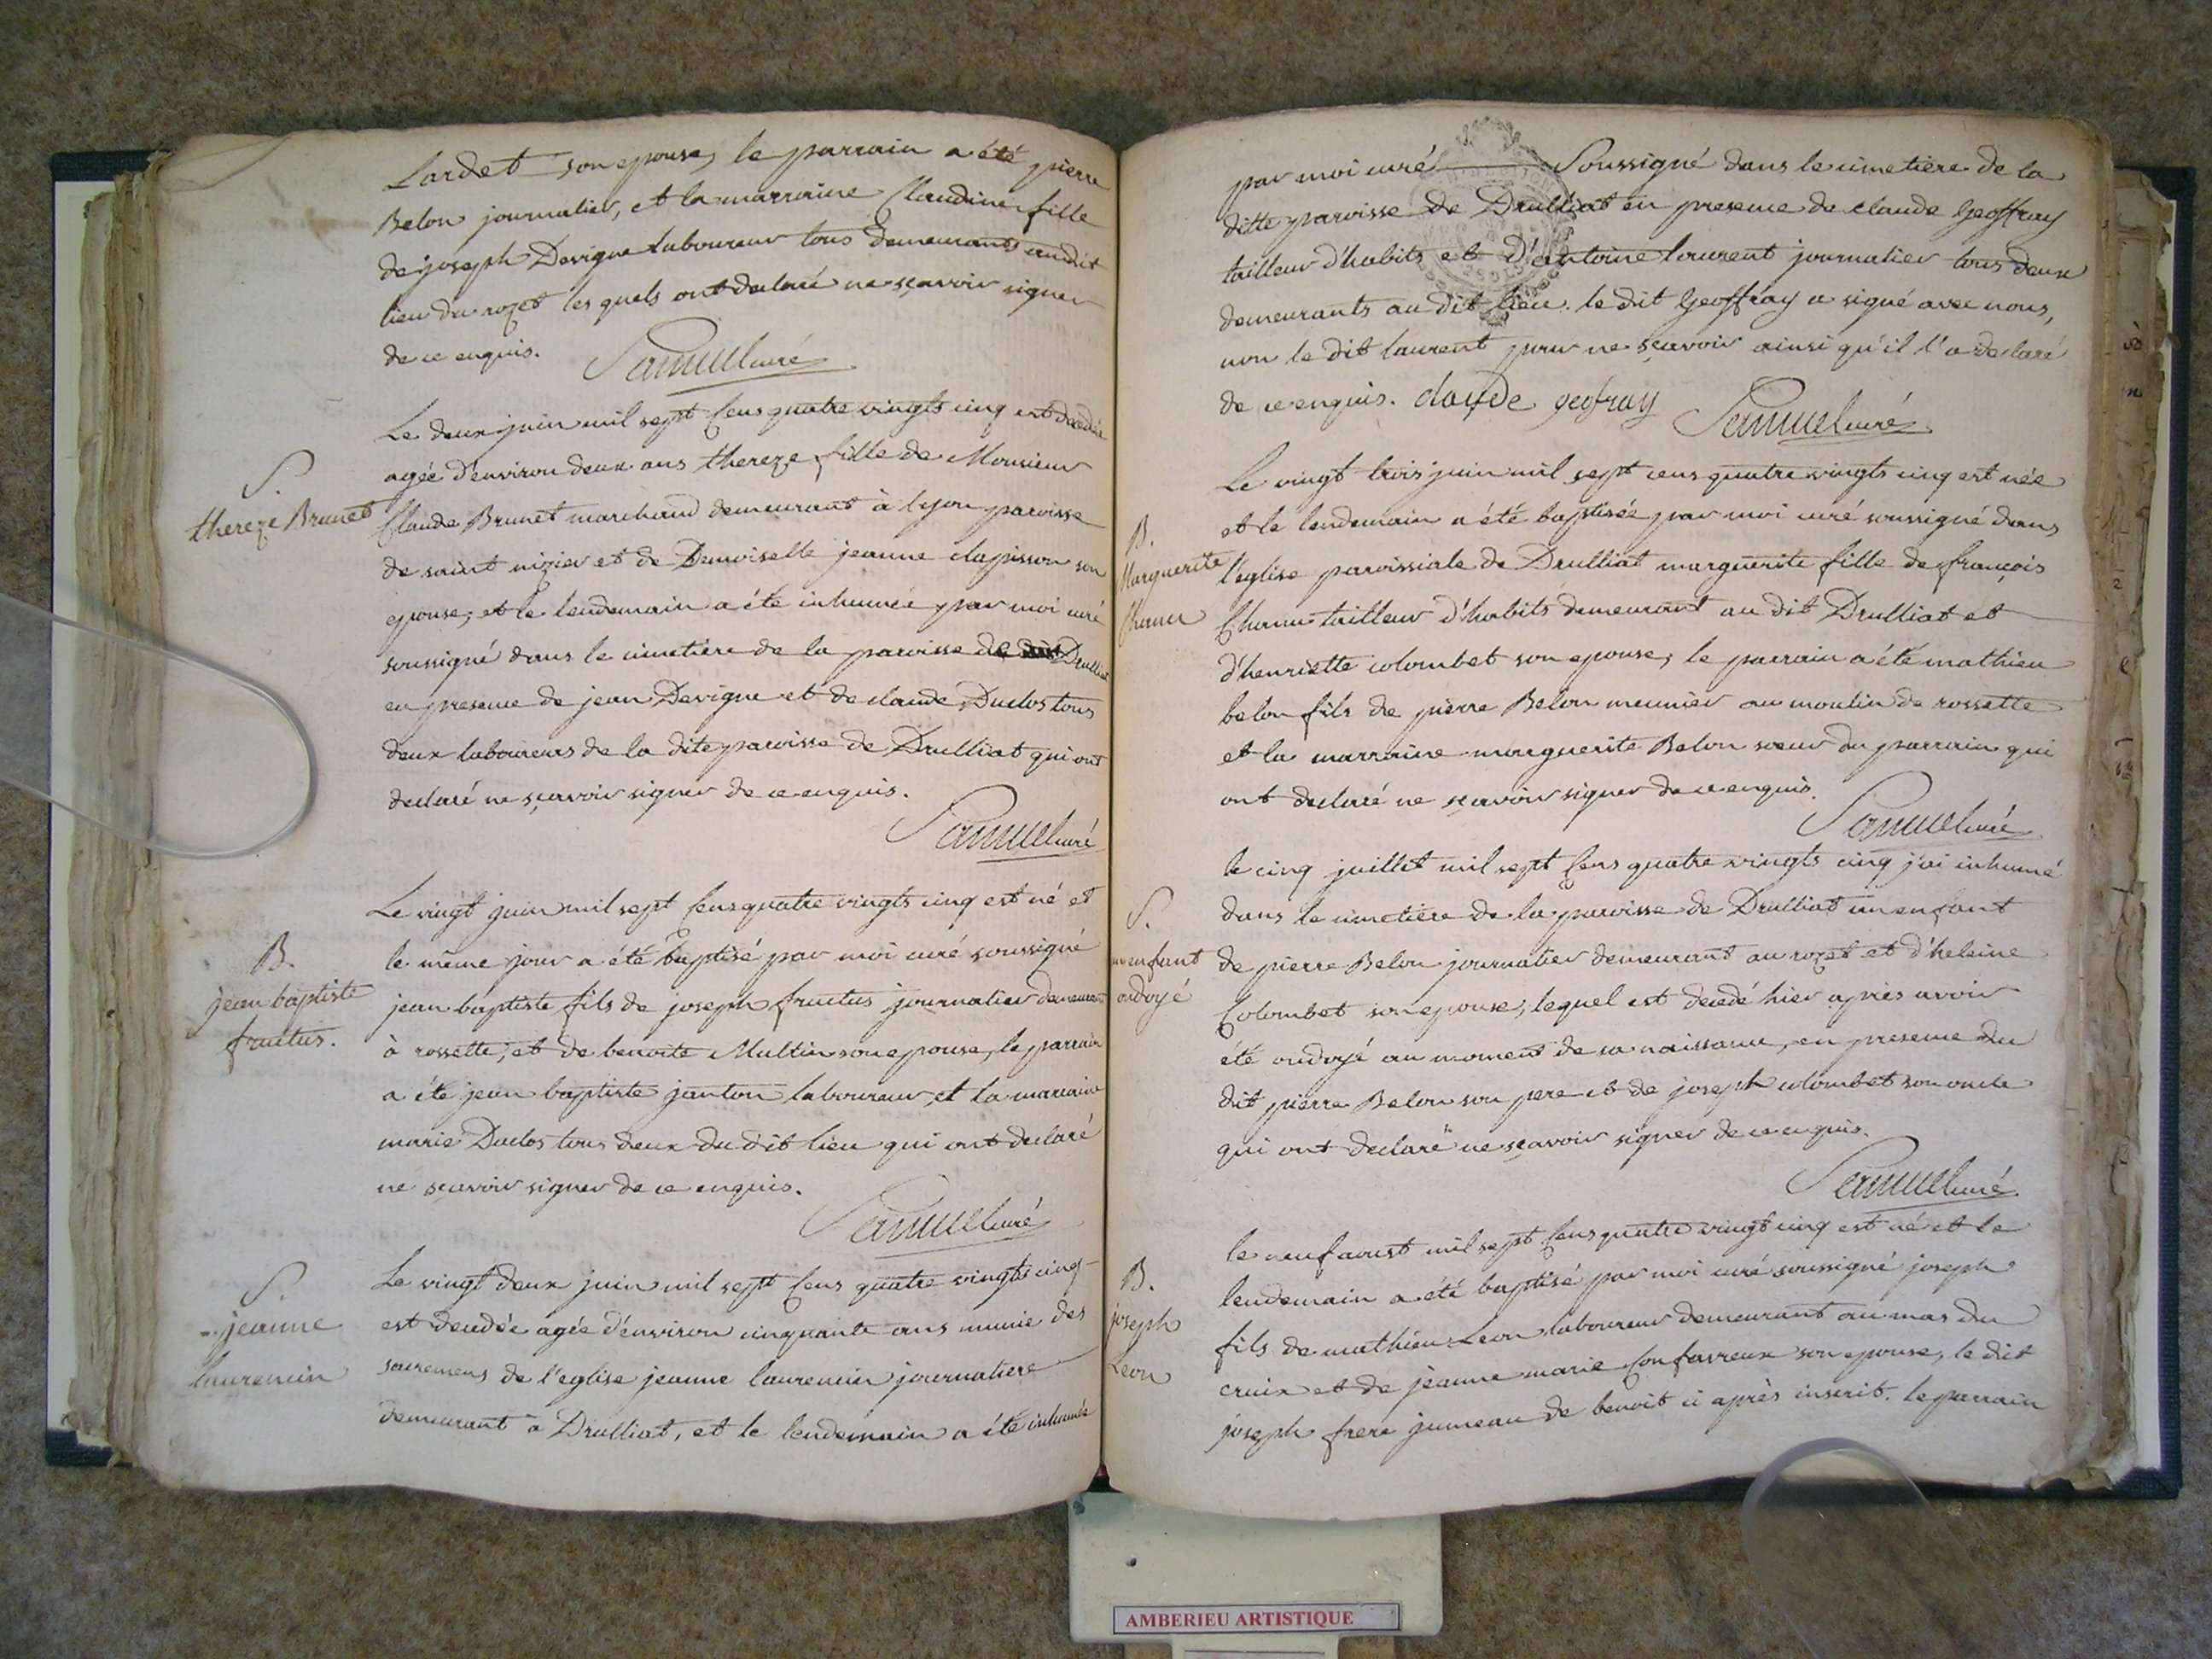 Lardet son epouse, le parrain a été pierre
Belon journalier, et la marraine Claudine fille
de joseph Devigne laboureur tous demeurants au dit
lieu du rozet les quels ont declaré ne sçavoir signer
de ce enquis. Samuel curé
S.
thereze Brunet
Le deux juin mil sept Cens quatre vingts cinq est decedée
agée d'environ deux ans thereze fille de Monsieur
Claude Brunet marchand demeurant à lyon paroisse
de saint nizier et de Demoiselle jeanne clapisson son
epouse, et le lendemain a été inhumée par moi curé
soussigné dans le cimetiere de la paroisse de Drulliat
en presence de jean Devigne et de claude Duclos tous
deux laboureurs de la dite paroisse de Drulliat qui ont
declaré ne sçavoir signer de ce enquis.
Samuel curé
B.
jean baptiste
fructus.
Le vingt juin mil sept Cens quatre vingts cinq est né et
le même jour a été baptisé par moi curé soussigné
jean baptiste fils de joseph fructus journalier demeurant
à rossette, et de benoite Multin son epouse, le parrain
a été jean baptiste janton laboureur, et la marraine
marie Duclos tous deux du dit lieu qui ont declaré
ne sçavoir signer de ce enquis.
Samuel curé
S.
jeanne
laurencin
Le vingt deux juin mil sept Cens quatre vingts cinq
est decedée agée d'environ cinquante ans munie des
sacremens de l'eglise jeanne laurencin journaliere
demeurant à Drulliat, et le lendemain a été inhumée
par moi curé Soussigné dans le cimetiere de la
ditte paroisse de Drulliat en presence de claude Geoffray
tailleur d'habits et d'antoine laurent journalier tous deux
demeurants au dit lieu. le dit Geoffray a signé avec nous,
non le dit laurent pour ne sçavoir ainsi qu'il l'a declaré
de ce enquis. claude geofray Samuel curé
B.
Marguerite
Chanu
Le vingt trois juin mil sept cens quatre vingts cinq est née
et le lendemain a été baptisée par moi curé soussigné dans
l'eglise paroissiale de Drulliat marguerite fille de françois
Chanu tailleur d'habits demeurant au dit Drulliat et
d'henriette colombet son epouse, le parrain a été mathieu
belon fils de pierre Belon meunier au moulin de rossette
et la marraine marguerite Belon soeur du parrain qui
ont declaré ne sçavoir signer de ce enquis.
Samuel curé
S.
un enfant
ondoyé
le cinq juillet mil sept Cens quatre vingts cinq j'ai inhumé
dans le cimetiere de la paroisse de Drulliat un enfant
de pierre Belon journalier demeurant au rozet et d'heleine
Colombet son epouse, lequel est decedé hier après avoir
été ondoyé au moment de sa naissance, en presence du
dit pierre Belon son pere et de joseph colombet son oncle
qui ont declaré ne sçavoir signer de ce enquis.
Samuel curé
B.
joseph
Leon
le neuf aoust mil sept Cens quatre vingt cinq est né et le
lendemain a été baptisé par moi curé soussigné joseph
fils de mathieu Leon laboureur demeurant au mas du
cruix et de jeanne marie Confavreux son epouse, le dit
joseph frere jumeau de benoit ci après inscrit. le parrain
AMBERIEU ARTISTIQUE